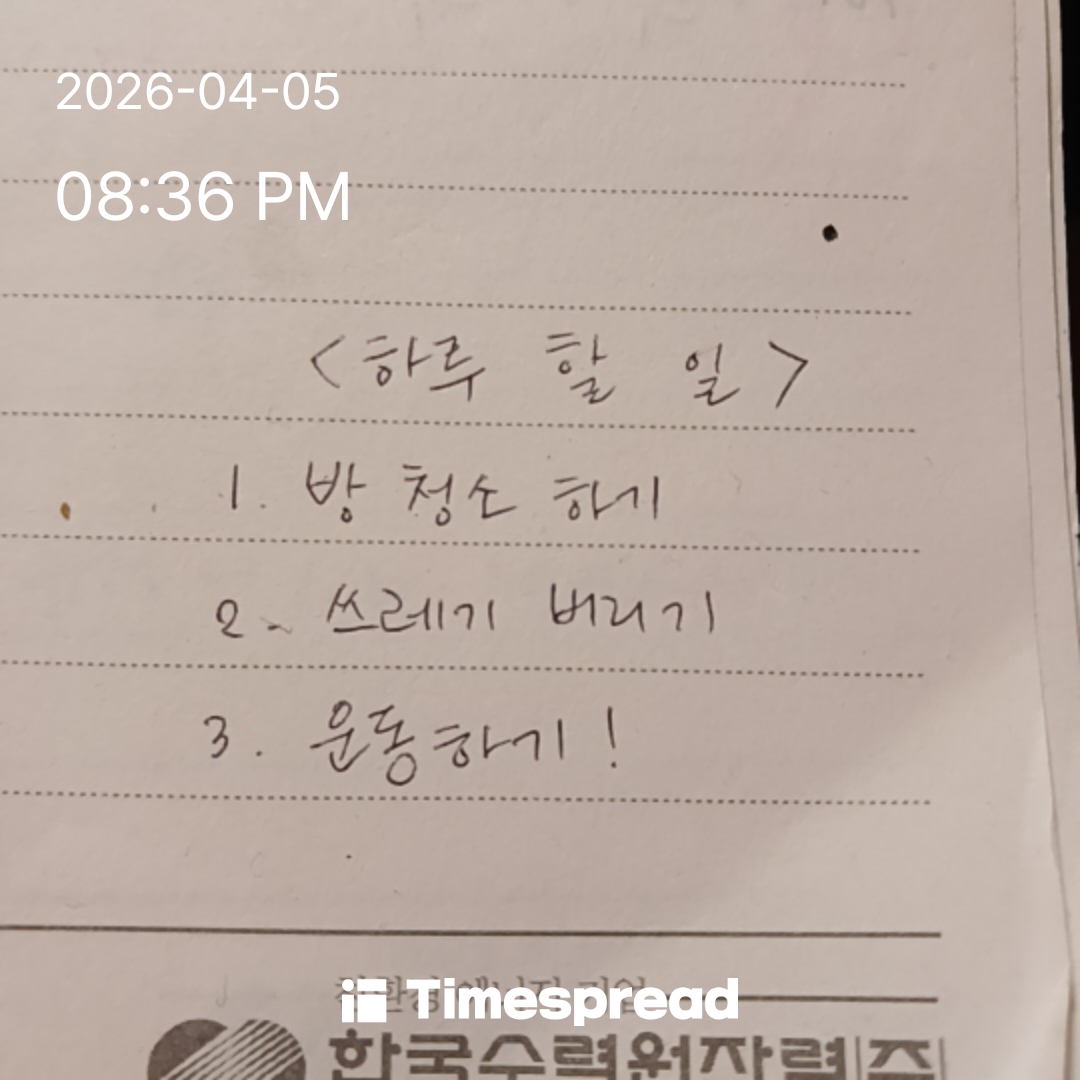 2026-04-05
08:36 PM
<하루 할 일>
1. 방 청소 하기
2. 쓰레기 버리기
3. 운동하기!
Timespread
한국수력원자력(주)